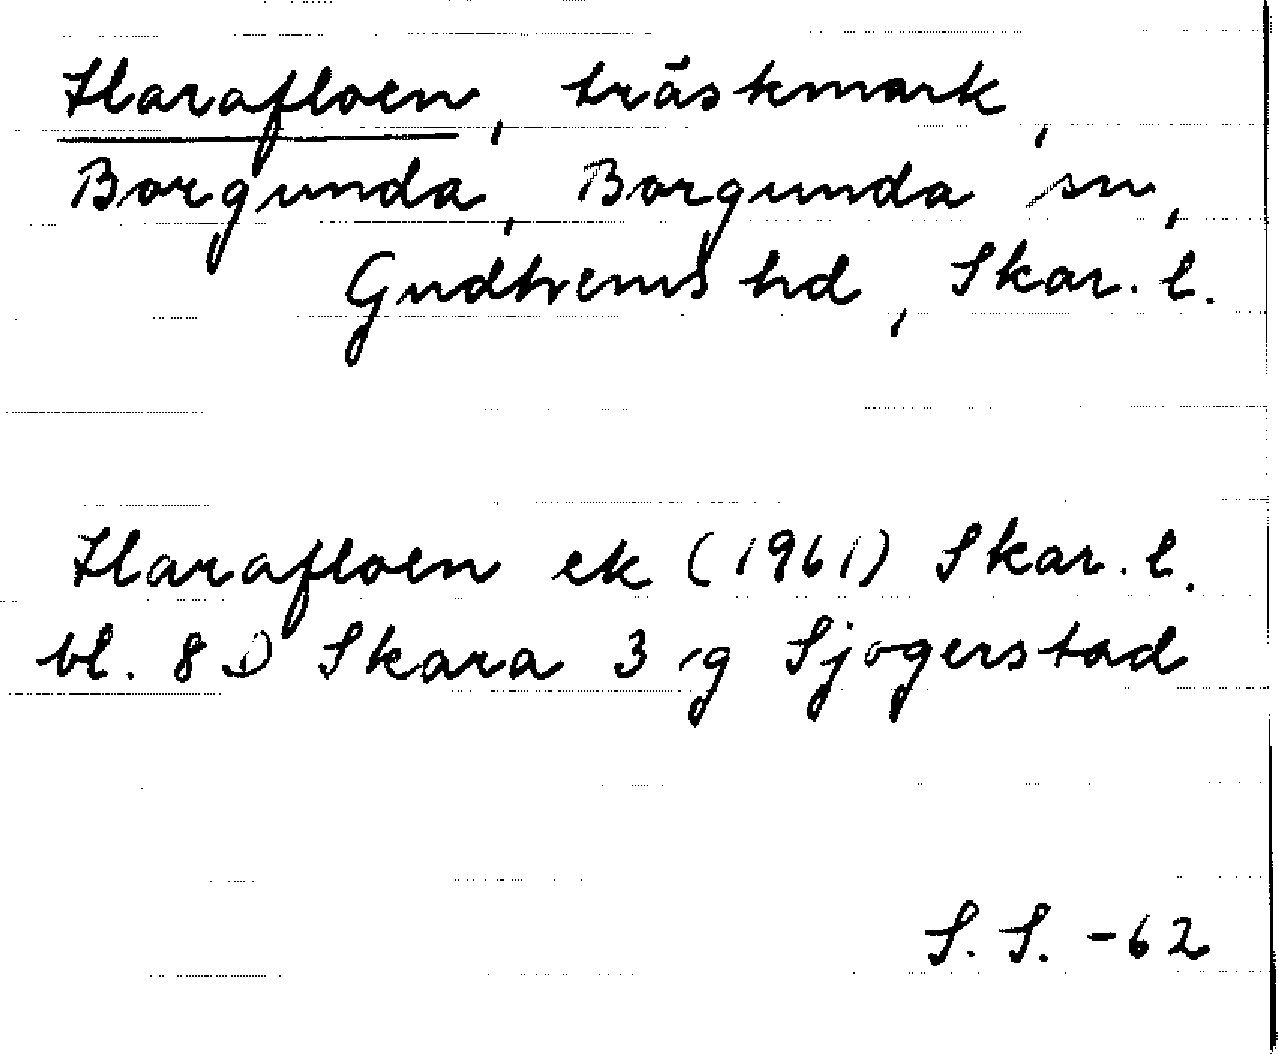 Harafloen, träskmark,
Borgunda, Borgunda sn,
Gudhems hd, Skar. l.
Harafloen ek (1961) Skar. l.
bl. 8 D Skara 3 g Sjogerstad
S. S. -62